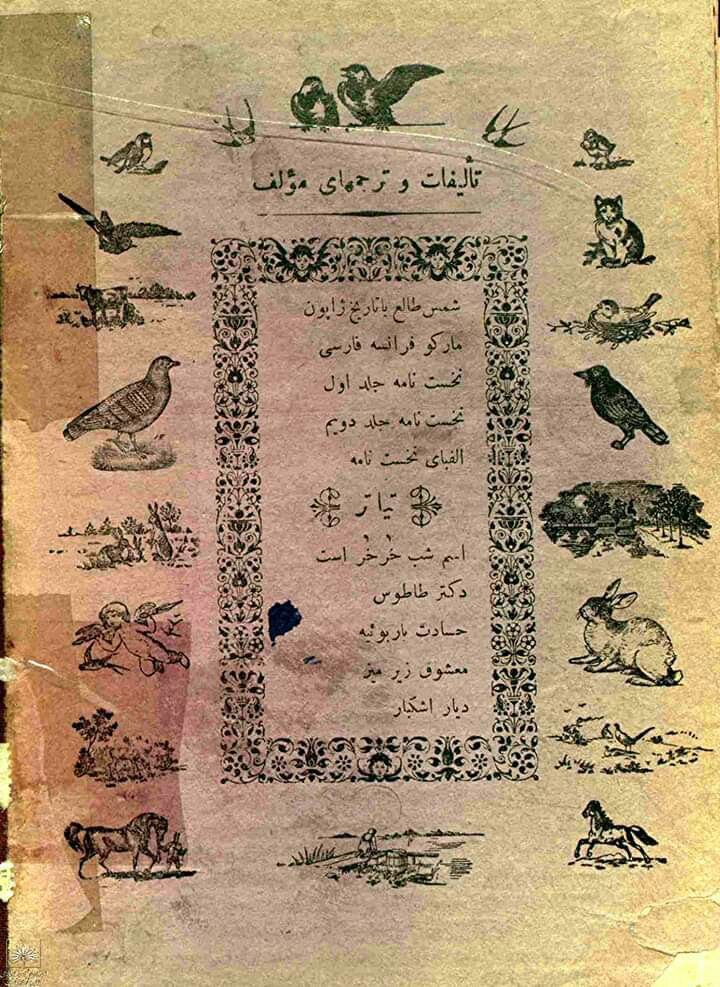 تألیفات و ترجمهای مؤلف
شمس طالع یا تاریخ ژاپون
مارکو فرانسه فارسی
نخست نامه جلد اول
نخست نامه جلد دویم
الفبای نخست نامه
تیاتر
اسم شب خُرخُر است
دکتر طاطوس
حسادت باربوئیه
معشوق زیر میز
دیار اشکبار